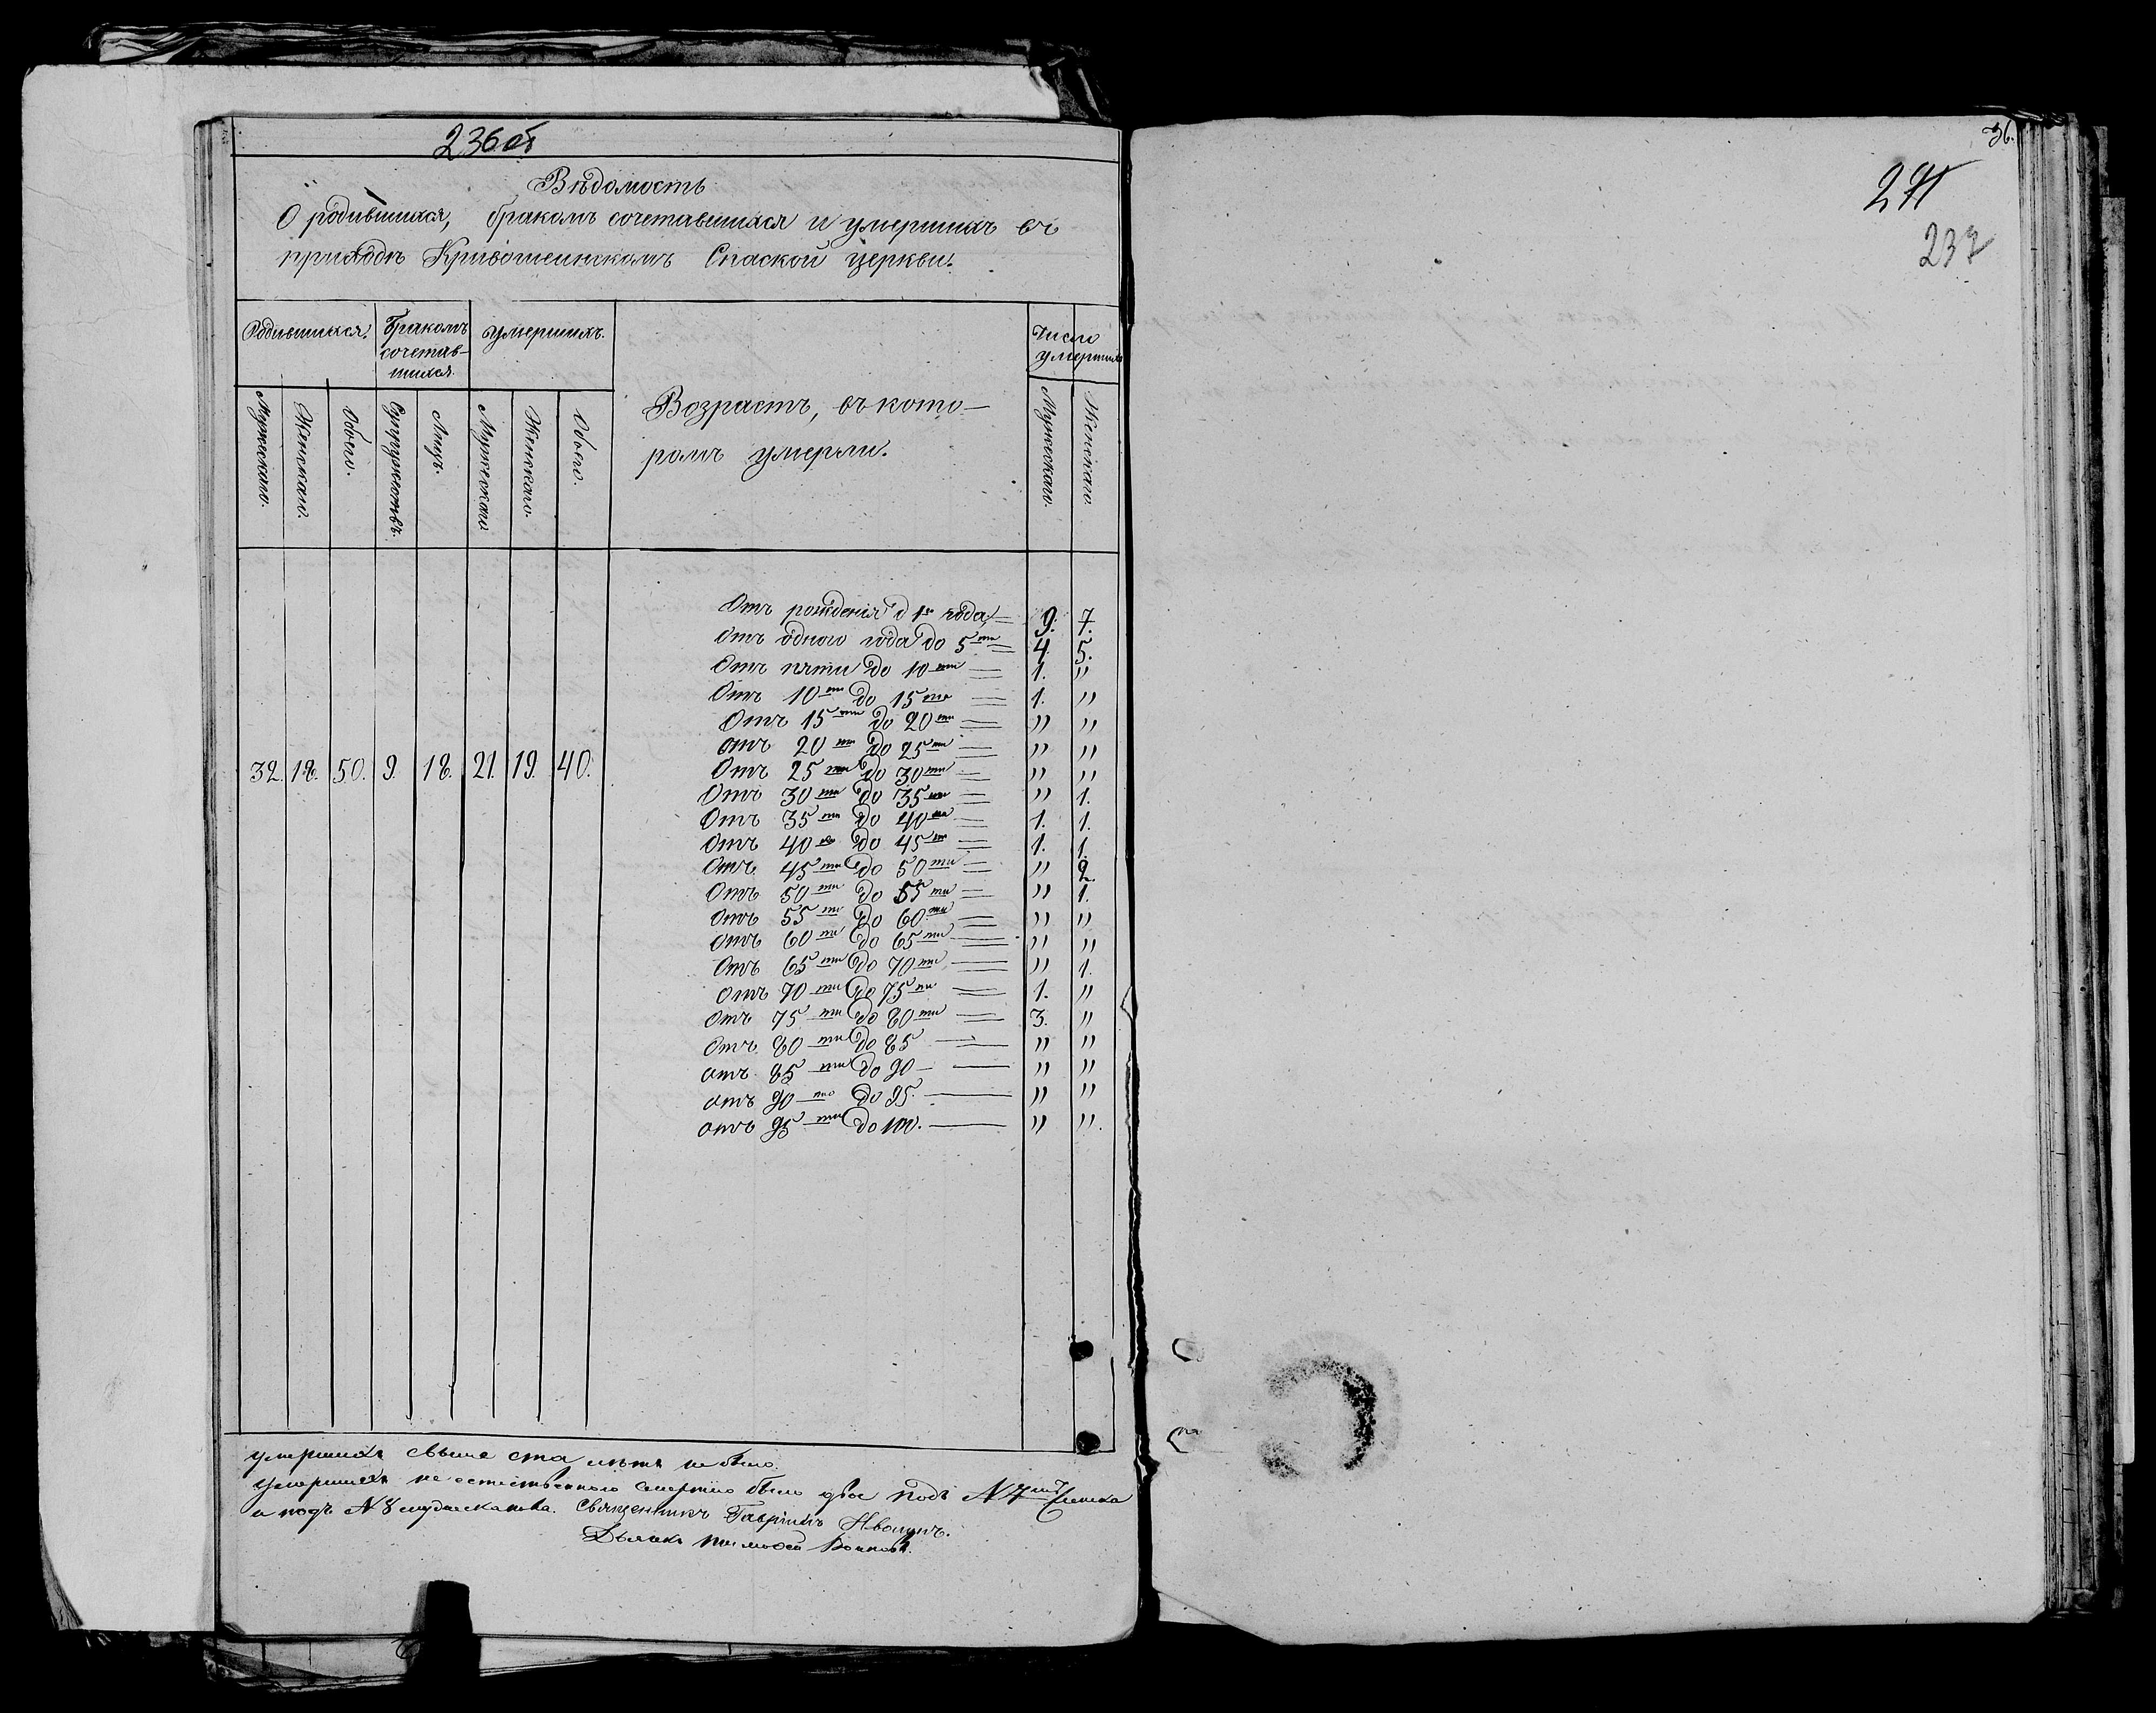 236 об
Вѣдомость
О родившихся, бракомъ сочетавшихся и умершихъ въ
приходѣ Кривошеинскомъ Спаской церкви.
Родившихся. Бракомъ сочетав- шихся. Умершихъ. Число умершихъ
Возрастъ, въ кото-
ромъ умерли.
Мужескаго. Женскаго. Обоего. Супружествъ. Лицъ. Мужескаго Женскаго. Обоего. Мужескаго. Женскаго
32. 18. 50. 9. 18. 21. 19. 40.
Отъ рожденія д 1го года 9. 7.
Отъ одного года до 5ти 4. 5.
Отъ пяти до 10ти 1. "
Отъ 10ти до 15ти 1. "
Отъ 15ти до 20ти " "
отъ 20ти до 25ти " "
Отъ 25ти до 30ти " "
Отъ 30ти до 35ти " 1.
Отъ 35ти до 40ка 1. 1.
Отъ 40ка до 45ти 1. 1.
Отъ 45ти до 50ти " 2.
Отъ 50ти до 55ти " 1.
Отъ 55ти до 60ти " "
Отъ 60ти до 65ти " "
Отъ 65ти до 70ти " 1.
Отъ 70ти до 75ти 1. "
Отъ 75ти до 80ти 3. "
Отъ 80ти до 85 " "
отъ 85ти до 90 " "
отъ 90то до 95. " "
отъ 95ти до 100. " ".
умершихъ свыше ста лѣтъ не было.
Умершихъ не естественною смертію было двое подъ N 7мъ
и подъ N 8 Священникъ Гавріилъ
Дьячекъ Тимофей
36.
271
237